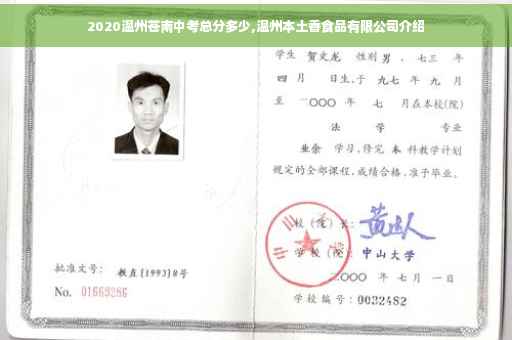 2020温州苍南中考总分多少,温州本土香食品有限公司介绍
学生 贺文龙 性别 男 、七三 年
四 月 日生,于 九七 年 九 月
至 二〇〇〇 年 七 月在本校(院)
法 学 专业
业余 学习,修完 本 科教学计划
规定的全部课程,成绩合格,准予毕业。
校(院)长:
学校(院): 中山大学
二〇〇〇 年 七 月 一 日
学校编号: 0032482
批准文号: 教直[1993]8号
No. 01669286